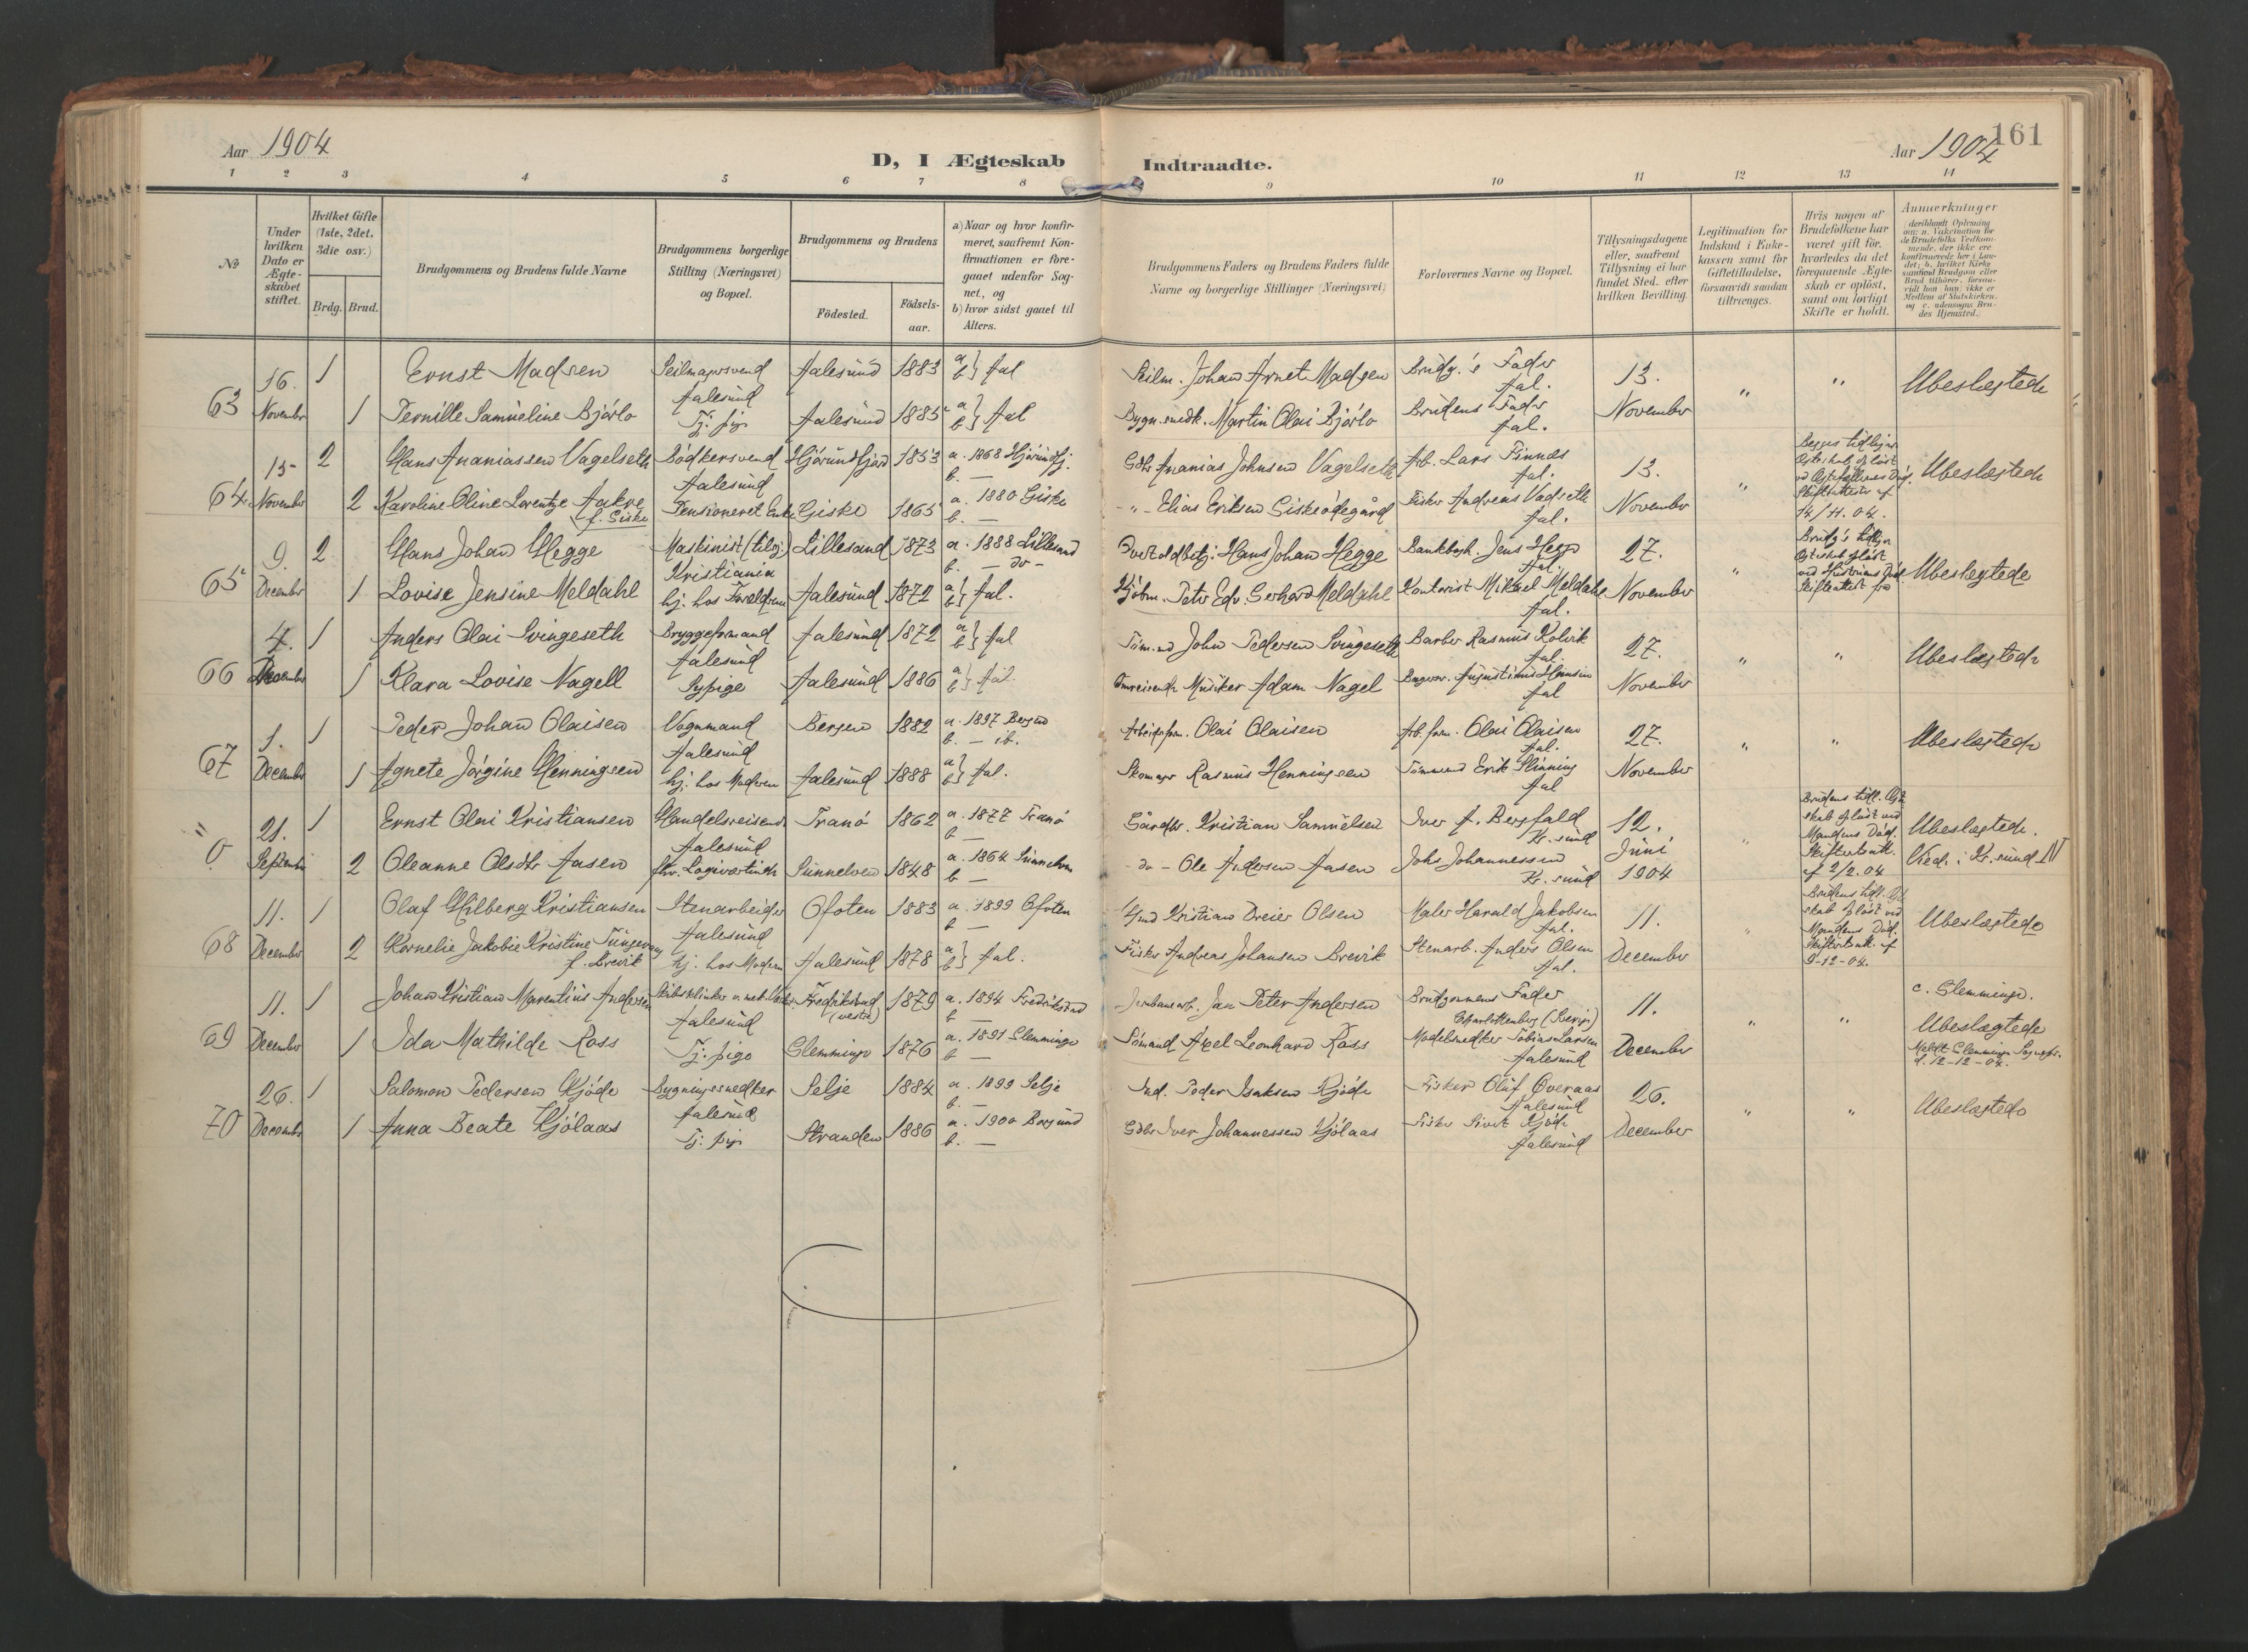 Aar 1904
D, I Ægteskab Indtraadte.
Aar 1904
161
1 2 3 4 5 6 7 8 9 10 11 12 13 14
№
Under hvilken Dato er Ægteskabet stiftet.
Hvilket Gifte (1ste, 2det, 3die osv.)
Brdg. Brud.
Brudgommens og Brudens fulde Navne
Brudgommens borgerlige Stilling (Næringsvei) og Bopæl.
Brudgommens og Brudens
Födested.
Födsels-aar.
a) Naar og hvor konfirmeret, saafremt Konfirmationen er foregaaet udenfor Sognet, og
b) hvor sidst gaaet til Alters.
Brudgommens Faders og Brudens Faders fulde Navne og borgerlige Stillinger (Næringsvei)
Forlovernes Navne og Bopæl.
Tillysningsdagene eller, saafremt Tillysning ei har fundet Sted, efter hvilken Bevilling.
Legitimation for Indskud i Enkekassen samt for Giftetilladelse, forsaavidt saadan tiltrænges.
Hvis nogen af Brudefolkene har været gift för, hvorledes da det foregaaende Ægteskab er oplöst, samt om lovligt Skifte er holdt.
Anmærkninger
63 16. November 1 Ernst Madsen Seilmagersvend Aalesund Aalesund 1883 a b } Aal Seilm. Johan Arnet Madsen Brudg.'s Fader Aal. 13. November " " Ubeslægtede
1 Pernille Samueline Bjørlo Tj. pige Aalesund 1885 a b } Aal Bygn.snedk. Martin Olai Bjørlo Brudens Fader Aal.
64 15 November 2 Hans Ananiassen Vagelseth Bødkersvend Aalesund Hjørundfjord 1853 a. 1868 Hjørundfj. b. — Gdbr Ananias Johnsen Vagelseth Arb. Lars Finnes Aal. 13. November " Begges tidligere Ægteskab opløst ved Ægtefællernes Død. Skifteattester af 14/11.04. Ubeslægtede
2 Karoline Oline Lorentze Aakre f. Giske Pensioneret Enke Giske 1865 a. 1880 Giske b. — -"- Elias Eriksen Giskeødegård Fisker Andreas Vadseth Aal.
65 9. December 2 Hans Johan Hegge Maskinist (tilsj.) Kristiania Lillesand 1873 a. 1888 Lillesand b. — do - Hans Johan Hegge Jens Hegge Aal. 27. November " Ubeslægtede
1 Lovise Jensine Meldahl hj. hos Forældrene Aalesund 1872 a b } Aal. Kjøbm. Peter Edv. Gerhard Meldahl Kontorist Mikael Meldahl Aal.
66 4. December 1 Anders Olai Svingeseth Bryggeformand Aalesund Aalesund 1872 a b } Aal Tøm.md John Pedersen Svingeseth Barber Rasmus Kolvik Aal. 27. November " " Ubeslægtede
1 Klara Lovise Nagell Sypige Aalesund 1886 a b } Aal. Omreisende Musiker Adam Nagel Aal
67 1. December 1 Peder Johan Olaisen Vognmand Aalesund Bergen 1882 a. 1897 Bergen b. — ib. Arbeidsfom. Olai Olaisen Arb. fom. Olai Olaisen Aal. 27. November " " Ubeslægtede
1 Agnete Jørgine Henningsen hj. hos Moderen Aalesund 1888 a b } Aal. Skomager Rasmus Henningsen Tømmermd Erik Slinning Aal
" 0 21. September 1 Ernst Olai Kristiansen Handelsreisende Aalesund Tranø 1862 a. 1877 Tranø b — Gårdbr. Kristian Samuelsen Iver A. Bergfald Kr.sund 12. Juni 1904 " Brudens tidl. Ægteskab opløst ved Mandens Død. Skifteretsatt. af 2/2.04 Ubeslægtede. Vied i Kr.sund N
2 Oleanne Olsdtr Aasen fhv. Logiværtinde Sunnelven 1848 a. 1864 Sunnelven b — - do - Ole Andersen Aasen Johs Johannessen Kr.sund
68 11. December 1 Olaf Hilberg Kristiansen Stenarbeider Aalesund Ofoten 1883 a. 1899 Ofoten b — Kristian Dreier Olsen Maler Harald Jakobsen Aal. 11. December " Brudens tidl. Ægteskab opløst ved Mandens Død. Skifteretsatt. af 9-12-04. Ubeslægtede
2 Kornelie Jakobie Kristine Tungevaag f. Brevik hj. hos Moderen Aalesund 1878 a b } Aal. Fisker Andreas Johansen Brevik Stenarb. Anders Olsen Aal.
69 11. December 1 Johan Kristian Marentius Andersen Aalesund Fredrikstad (vestre) 1879 a. 1894 Fredrikstad b — Jernbanearb. Jan Peter Andersen Brudgommens Fader Charlottenberg (Sverige) 11. December " " c. Glemminge. Ubeslægtede Meldt Glemminge Sognepr. d. 12-12-04.
1 Ida Mathilde Ross Tj. pige Glemminge 1876 a. 1891 Glemminge b — Sömand Axel Leonhard Ross Modelsnedker Tobias Larsen Aalesund
70 26. December 1 Salomon Pedersen Kjøde Bygningssnedker Aalesund Selje 1884 a. 1899 Selje b. — Ind. Peder Isaksen Kjøde Fisker Oluf Overaas Aalesund 26. December " " Ubeslægtede
1 Anna Beate Kjølaas Tj. pige Stranden 1886 a. 1900 Borgund b. — Gdbr Iver Johannessen Kjølaas Fisker Sivert Kjøde Aalesund